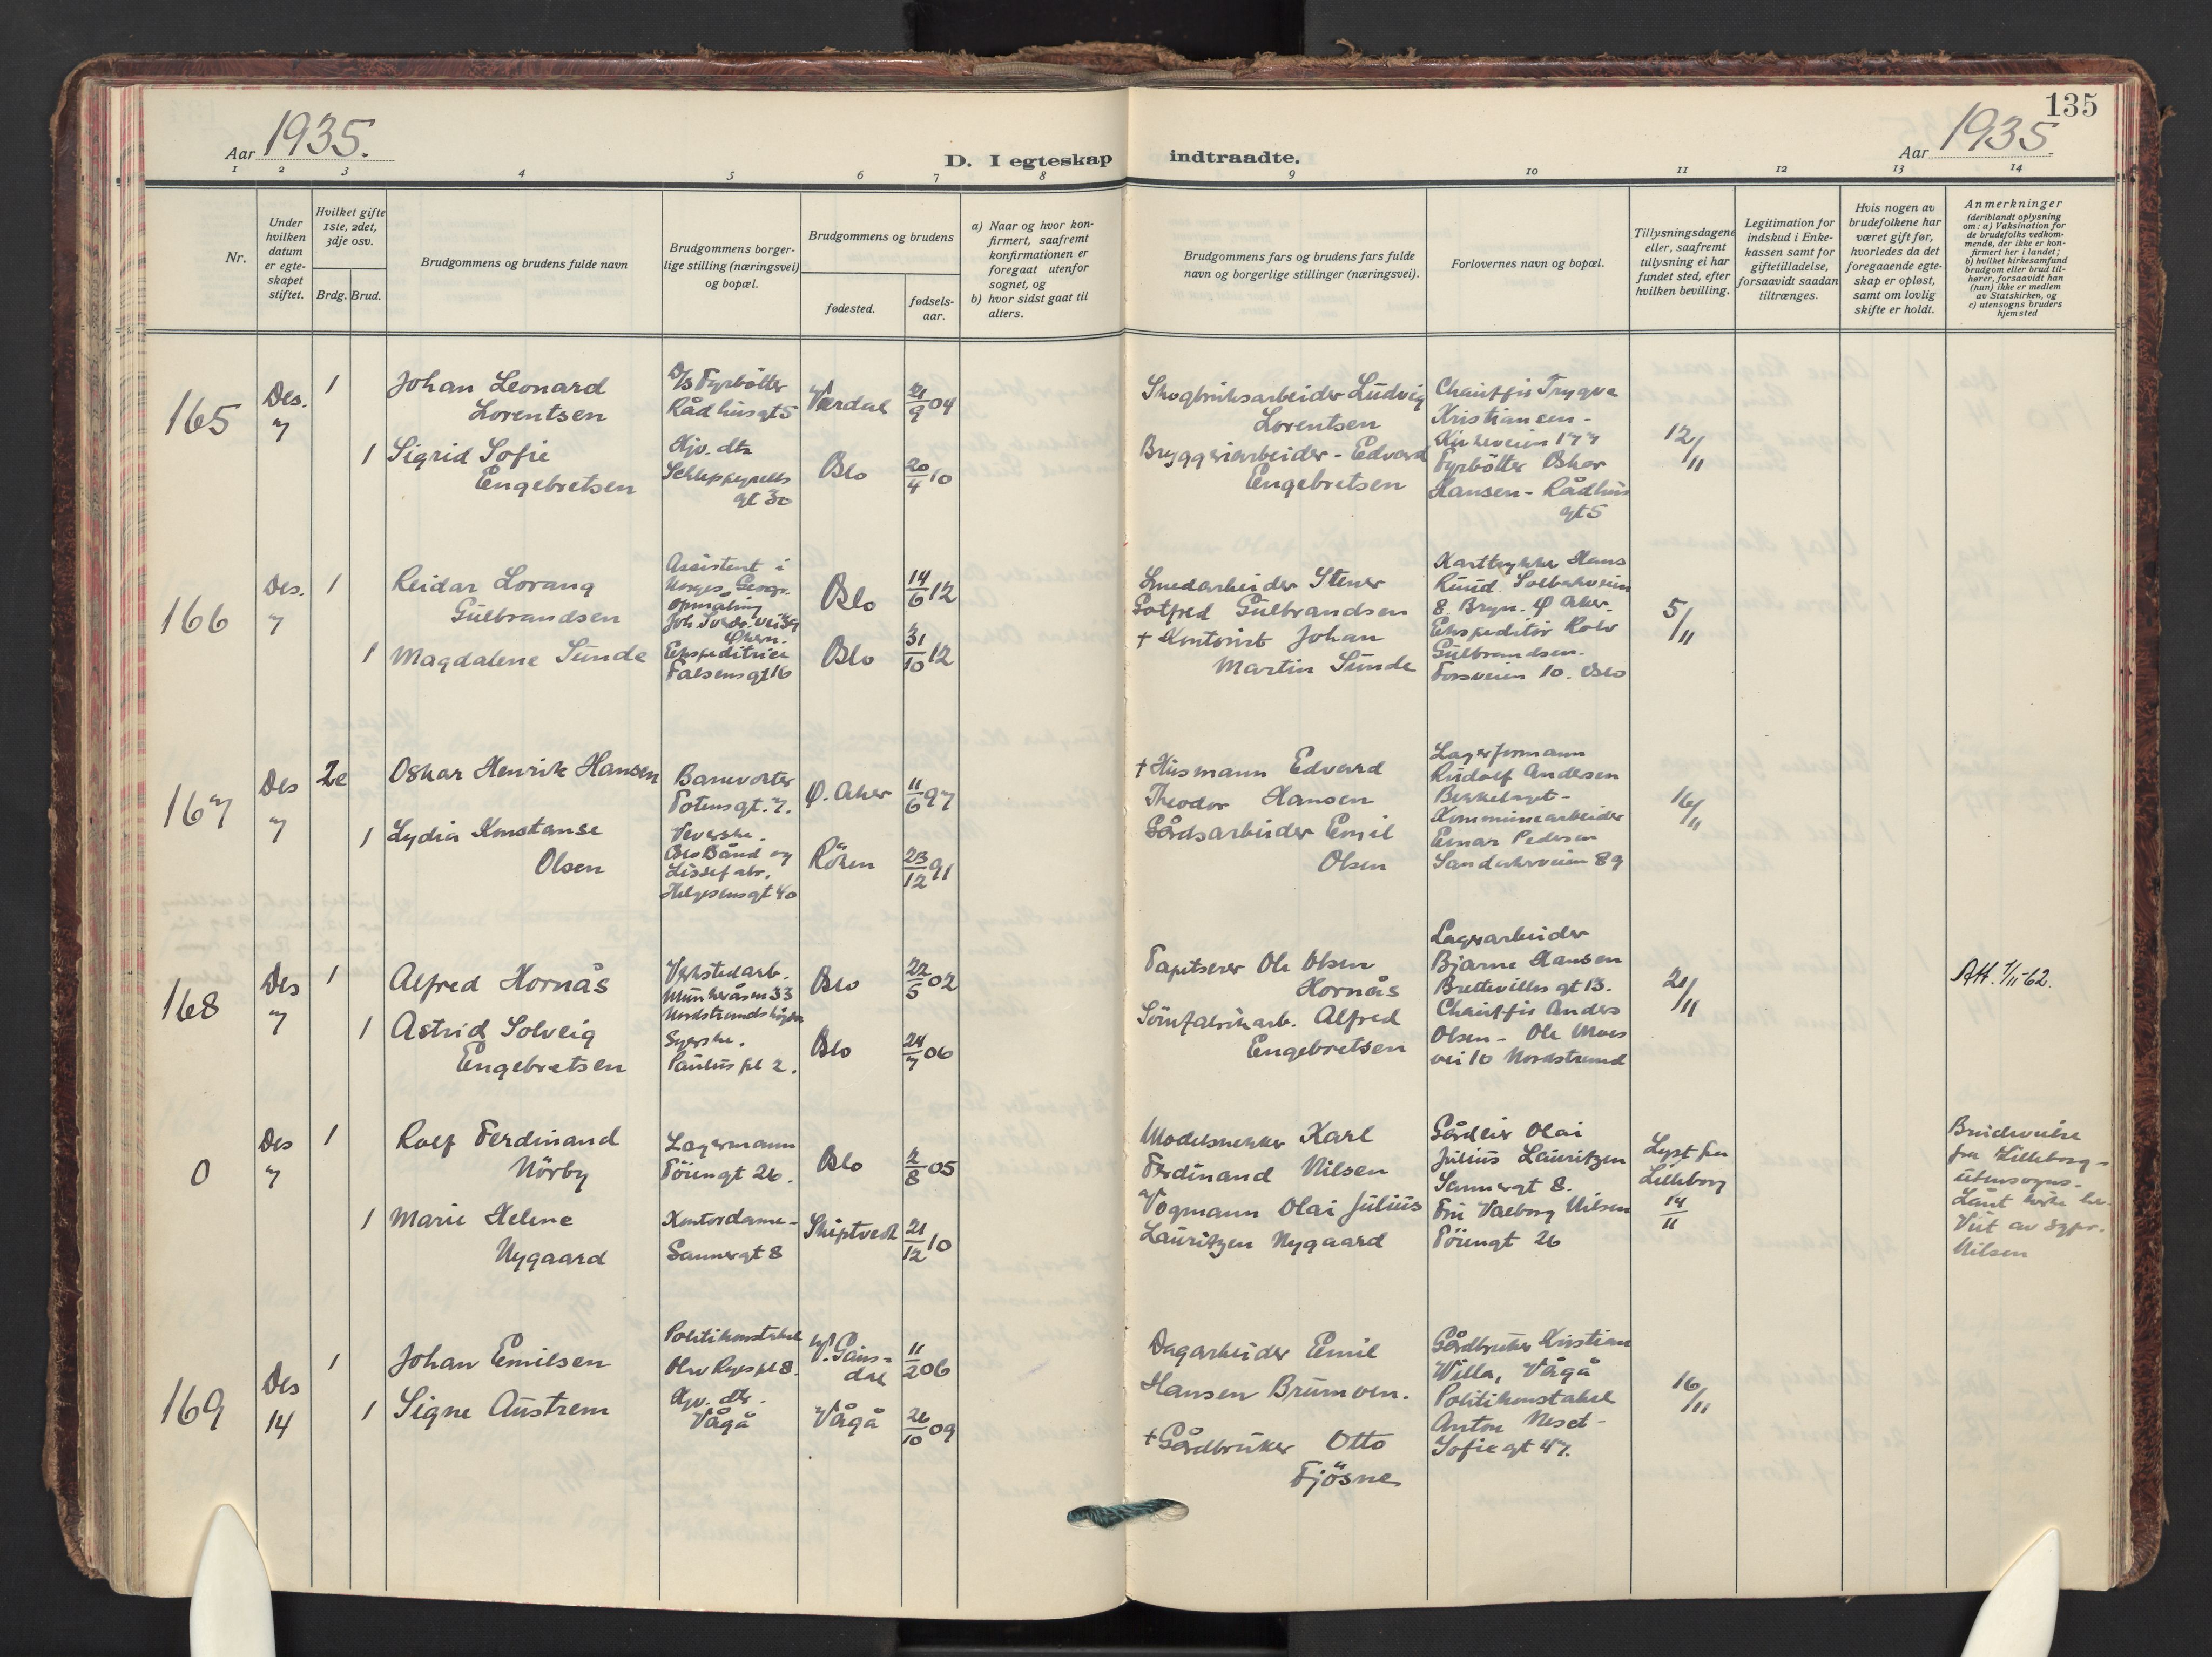 135
Aar 1935.
D. I egteskap indtraadte.
Aar 1935.
1 2 3 4 5 6 7 8 9 10 11 12 13 14
Nr.
Under
hvilken
datum
er egte-
skapet
stiftet.
Hvilket gifte
1ste, 2det,
3dje osv.
Brdg. Brud.
Brudgommens og brudens fulde navn
Brudgommens borger-
lige stilling (næringsvei)
og bopæl.
Brudgommens og brudens
fødested.
fødsels-
aar.
a) Naar og hvor kon-
firmert, saafremt
konfirmationen er
foregaat utenfor
sognet, og
b) hvor sidst gaat til
alters.
Brudgommens fars og brudens fars fulde
navn og borgerlige stillinger (næringsvei).
Forlovernes navn og bopæl.
Tillysningsdagene
eller, saafremt
tillysning ei har
fundet sted, efter
hvilken bevilling.
Legitimation for
indskud i Enke-
kassen samt for
giftetilladelse,
forsaavidt saadan
tiltrænges.
Hvis nogen av
brudefolkene har
været gift før,
hvorledes da det
foregaaende egte-
skap er opløst,
samt om lovlig
skifte er holdt.
Anmerkninger
(deriblandt oplysning
om: a) Vaksination for
de brudefolks vedkom-
mende, der ikke er kon-
firmert her i landet;
b) hvilket kirkesamfund
brudgom eller brud til-
hører, forsaavidt han
(hun) ikke er medlem
av Statskirken, og
c) utensogns bruders
hjemsted
165
Des.
7
1
Johan Leonard
Lorentsen
D/S Fyrböter
Rådhusgt 5
Verdal
21/9 04
Skogbruksarbeider Ludvig
Lorentsen
Chauffør Trygve
Kristiansen -
Kirkeveien 177
12/11
1
Sigrid Sofie
Engebretsen
Hjv. dtr
Schleppegrells
gt 30
Oslo
20/4 10
Bryggeriarbeider - Edvard
Engebretsen
Fyrbötter Oskar
Hansen - Rådhus
gt 5
166
Des.
7
1
Reidar Lorang
Gulbrandsen
Assistent i
Norges Geogr.
opmåling
Oslo
14/6 12
Stener
Gotfred Gulbrandsen
Hans
Ruud
8. Bryn. Ø Aker.
5/11
1
Magdalene Sunde
Ekspeditrice
Falsensgt 16
Oslo
31/10 12
+ Kontorist Johan
Martin Sunde
Ekspeditør Rolv
Gulbrandsen.
10. Oslo
167
Des
7
2e
Oskar Henrik Hansen
Banevokter
Totensgt. 7.
Ø. Aker
11/6 97
+ Husmann Edvard
Theodor Hansen
Lagerformann
Rudolf Andersen
Bekkelaget -
16/11
1
Lydia Konstanse
Olsen
Veverske.
Oslo Bånd og
Lissefabr.
Helgesensgt 40
Röken
23/12 91
Gårdsarbeider Emil
Olsen
Kommunearbeider
Einar Pedersen
Sandakerveien 89
168
Des
7
1
Alfred Hornås
Verkstedarb.
Munkeråsen 33
Nordstrandshögda
Oslo
22/5 02
Tapetserer Ole Olsen
Hornås
Lagerarbeider
Bjarne Hansen
Brettevilles gt 13.
21/11
Att. 1/11-62.
1
Astrid Solveig
Engebretsen
Syerske.
Paulus pl 2.
Oslo
24/7 06
Sömfabrikarb. Alfred
Engebretsen
Chauffør Anders
Olsen - Ole Moes
vei 10 Nordstrand
0
Des
7
1
Rolf Ferdinand
Nörby
Lagermann
Töiengt 26.
Oslo
2/8 05
Modelsnekker Karl
Ferdinand Nilsen
Gårdeier Olai
Julius Lauritzen
Sannergt 8.
Lyst fra
Lilleborg
14/11
fra Lilleborg -
utensogns -
Viet av sgpr.
Nilsen
1
Marie Helene
Nygaard
Kontordame -
Sannergt 8
Skiptvedt
21/12 10
Vognmann Olai Julius
Lauritzen Nygaard
Fru Valborg Nilsen
Töiengt 26
169
Des
14
1
Johan Emilsen
Politikonstabel
Olav Ryes pl 8.
V. Gaus-
dal
11/2 06
Dagarbeider Emil
Hansen Brumoen.
Gårdbruker Kristian
Willa, Vågå
16/11
1
Signe Austrem
Hjv. dtr.
Vågå
Vågå
26/10 09
+ Gårdbruker Otto
Fjösne
Politikonstabel
Anton Neset -
Sofie gt 47.